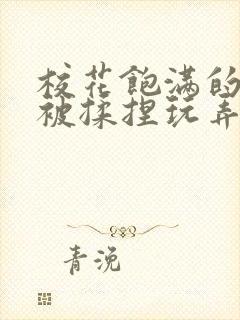 校花飽满的
被揉捏玩弄
青浼